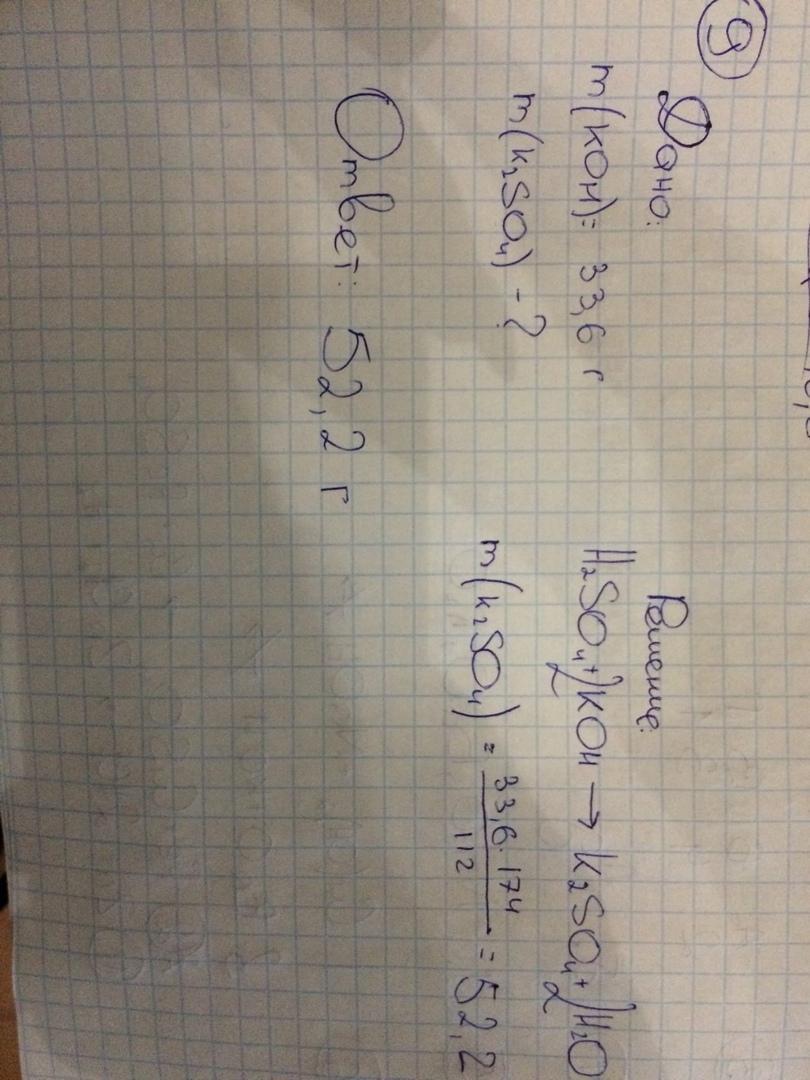 9
Дано:
m(KOH)= 33,6 г
m(K₂SO₄) - ?
Решение:
H₂SO₄+2KOH → K₂SO₄+2H₂O
m(K₂SO₄) = 33,6·174 / 112 = 52,2
Ответ: 52,2 г